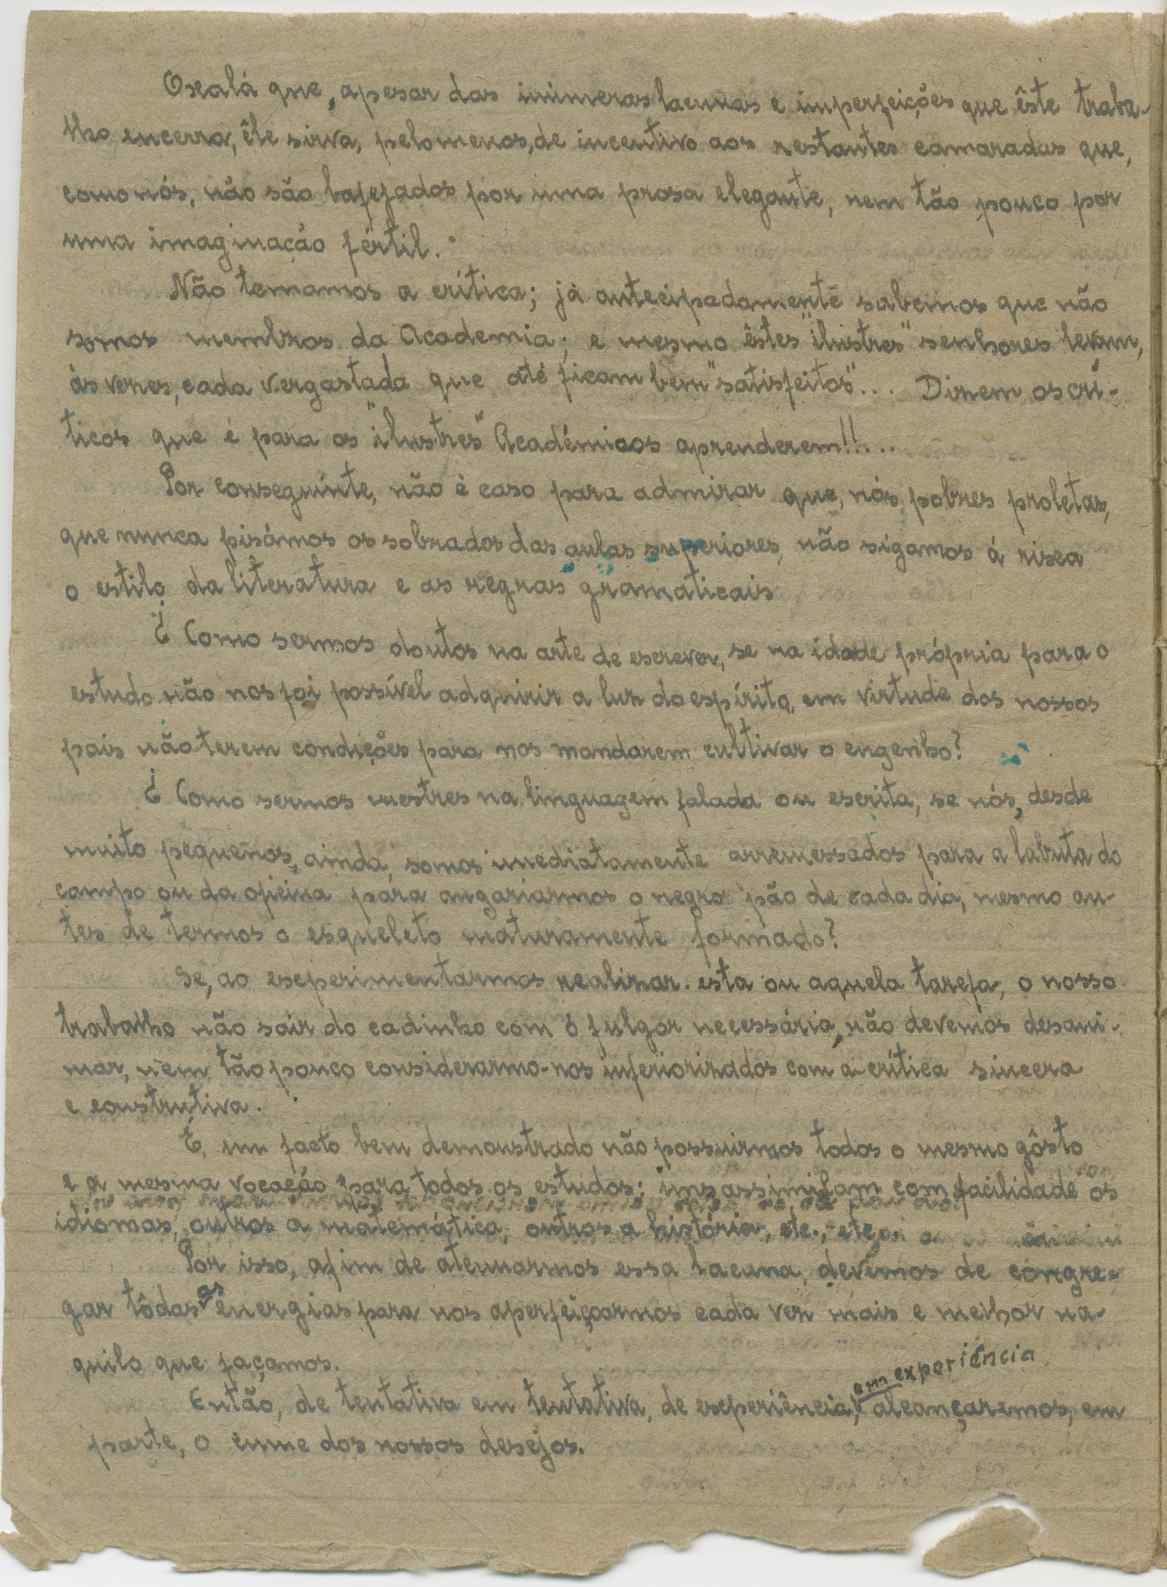 Oxalá que, apesar das inúmeras lacunas e imperfeições que êste traba-
lho encerra, êle sirva, pelo menos, de incentivo aos restantes camaradas que,
como nós, não são bafejados por uma prosa elegante, nem tão pouco por
uma imaginação fértil.
Não temamos a crítica; já antecipadamente sabemos que não
somos membros da Academia; e mesmo êstes "ilustres" senhores levam,
ás vezes, cada vergastada que até ficam bem "satisfeitos"... Dizem os crí-
ticos que é para os "ilustres" Académicos aprenderem!!...
Por conseguinte, não é caso para admirar que, nós, pobres proletas,
que nunca pisámos os sobrados das aulas superiores, não sigamos á risca
o estilo da literatura e as regras gramaticais
¿ Como sermos doutos na arte de escrever, se na idade própria para o
estudo não nos foi possível adquirir a luz do espírito, em virtude dos nossos
pais não terem condições para nos mandarem cultivar o engenho?
¿ Como sermos mestres na linguagem falada ou escrita, se nós, desde
muito pequenos, ainda, somos imediatamente arremessados para a labuta do
campo ou da oficina para angariarmos o negro pão de cada dia, mesmo an-
tes de termos o esqueleto maturamente formado?
Se, ao experimentarmos realizar esta ou aquela tarefa, o nosso
trabalho não sair do cadinho com o fulgor necessário, não devemos desani-
mar, nem tão pouco considerarmo-nos inferiorizados com a crítica sincera
e construtiva.
É um facto bem demonstrado não possuirmos todos o mesmo gôsto
e a mesma vocação para todos os estudos; uns assimilam com facilidade os
idiomas, outros a matemática, outros a história, etc., etc.
Por isso, afim de atenuarmos essa lacuna, devemos de congre-
gar tôdas as energias para nos aperfeiçoarmos cada vez mais e melhor na-
quilo que façamos.
Então, de tentativa em tentativa, de experiência em experiência, alcançaremos, em
parte, o cume dos nossos desejos.